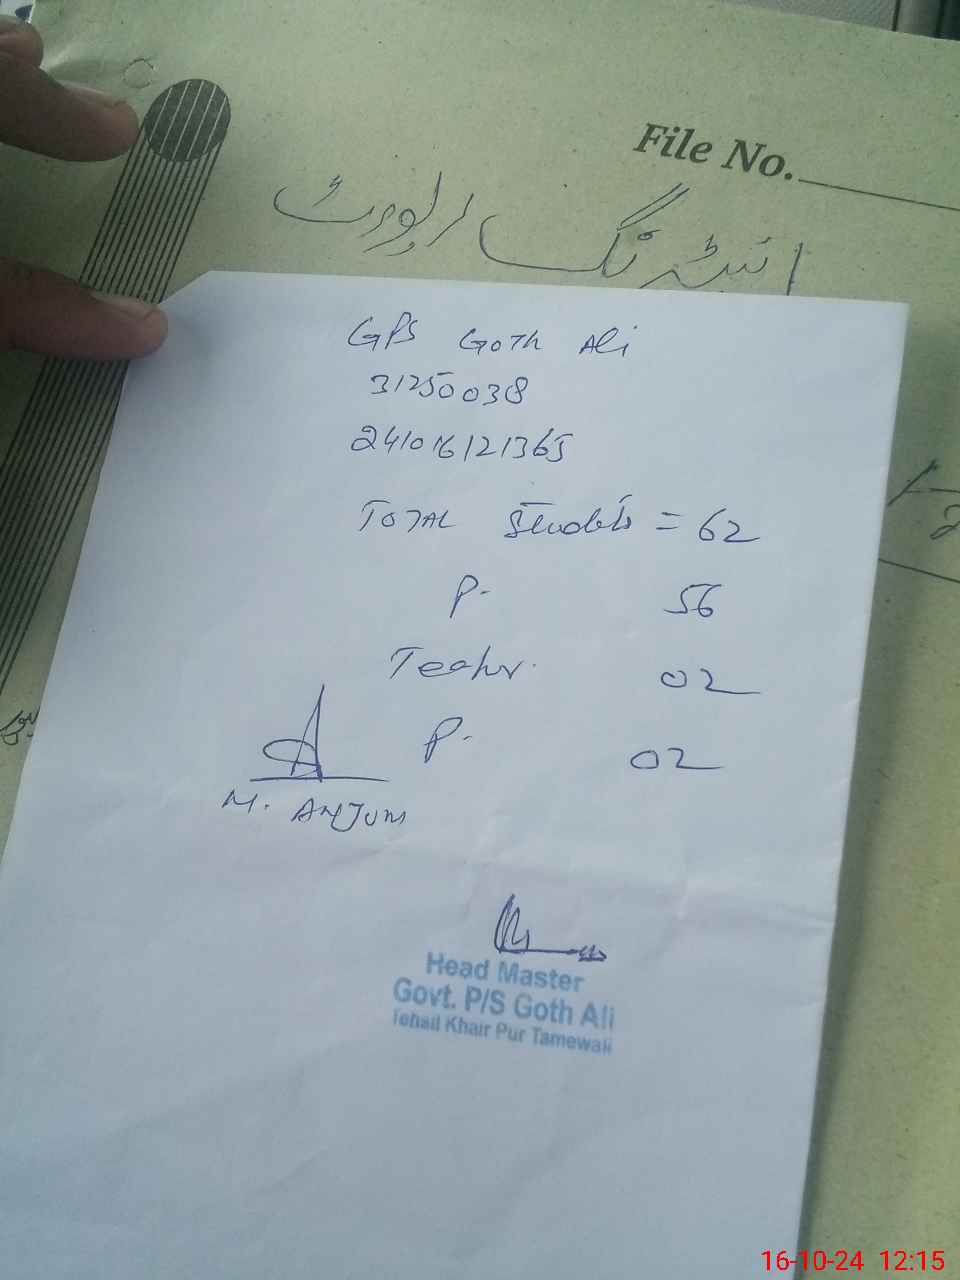 File No.
GPS GOTH Ali
31250038
241016121365
TOTAL Students = 62
P. 56
Teachr. 02
P. 02
M. ANJUM
Head Master
Govt. P/S Goth Ali
Tehsil Khair Pur Tamewali
16-10-24 12:15